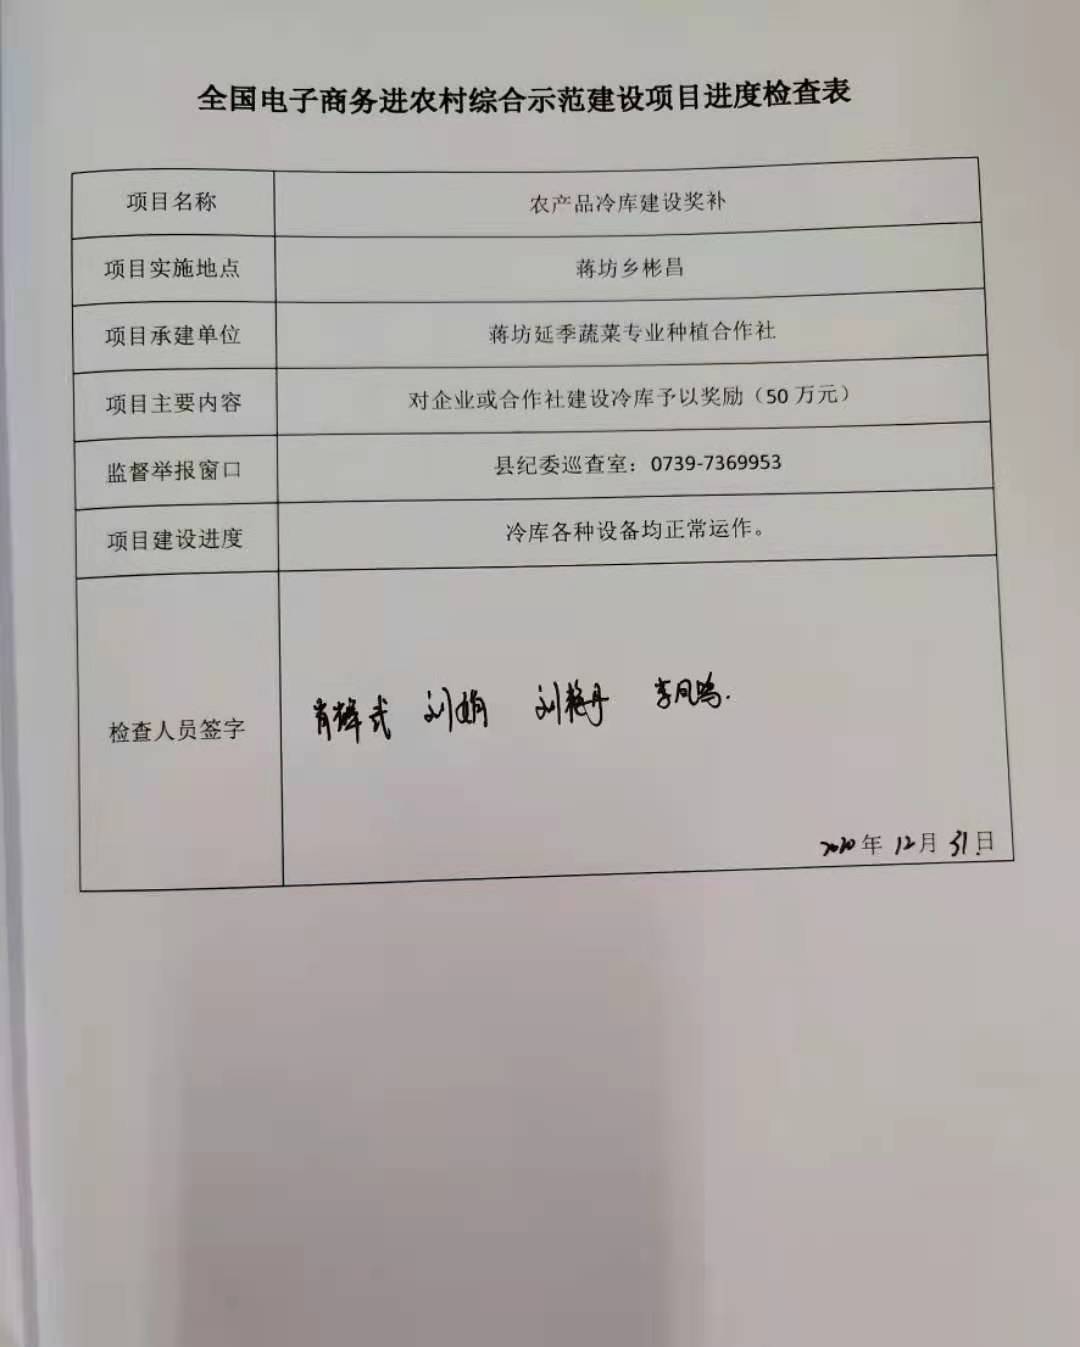 全国电子商务进农村综合示范建设项目进度检查表
项目名称 农产品冷库建设奖补
项目实施地点 蒋坊乡彬昌
项目承建单位 蒋坊延季蔬菜专业种植合作社
项目主要内容 对企业或合作社建设冷库予以奖励（50 万元）
监督举报窗口 县纪委巡查室：0739-7369953
项目建设进度 冷库各种设备均正常运作。
检查人员签字 刘娟 李凤鸣.
2020年 12月 31日